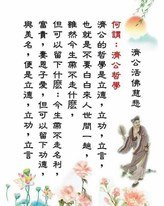 濟公活佛慈悲
何謂：濟公哲學
濟公的哲學是立德，立功，立言，
也就是不要白白來人世間一趟，
雖然今生帶不走什麼，
但可以留下什麼：今生帶不走名利，
富貴，妻兒子愛，但可以留下功德
與美名，便是立德，立功，立言